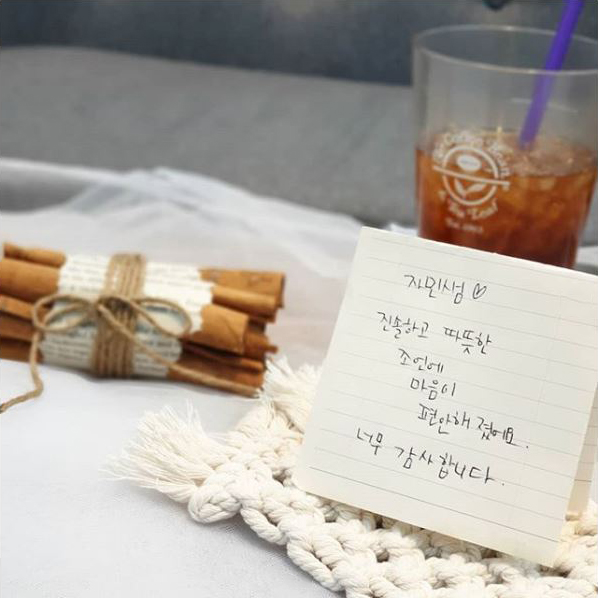 자민쌤 ♡
진솔하고 따뜻한
조언에
마음이
편안해졌어요.
너무 감사합니다.
The Coffee Bean
& Tea Leaf